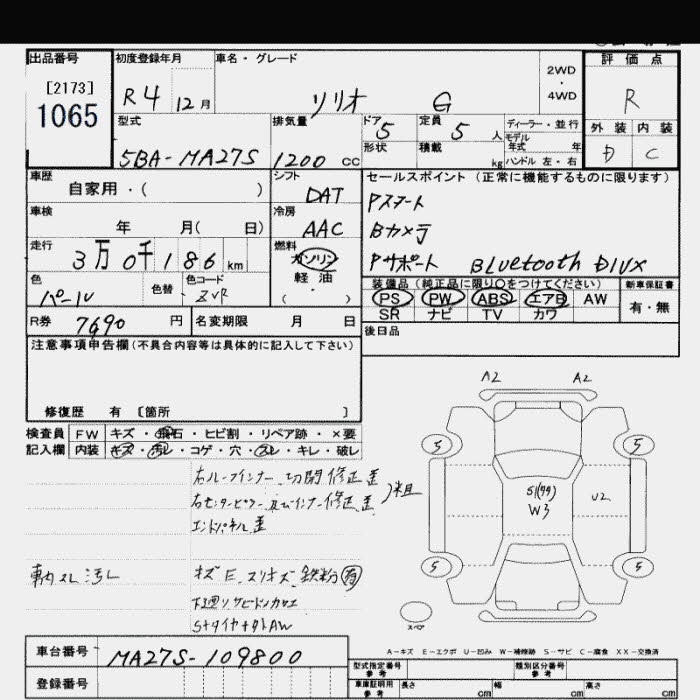 出品番号 初度登録年月 車名・グレード 評価点
[2173]
1065
R4 12月 ソリオ G 2WD ・ 4WD R
型式 排気量 ドア 5 定員 5人 ディーラー・並行 外装 内装
形状 積載 kg モデル年式 年 D C
5BA-MA27S 1200 cc ハンドル 左・右
車歴 シフト セールスポイント (正常に機能するものに限ります)
自家用・( ) DAT Pスタート
車検 冷房 Bカメラ
年 月( 日) AAC
走行 燃料 Pサポート Bluetooth
3万0千186km ガソリン
色 色替 色コード 軽油 装備品 (純正品に限り○をつけてください) 新車保証書
パール ZVR ( ) PS PW ABS エアB AW 有・無
SR ナビ TV カワ
R券 7690円 名変期限 月 日 後日品
注意事項申告欄(不具合内容等は具体的に記入して下さい)
修復歴 有 [箇所 ]
検査員 FW キズ・飛石・ヒビ割・リペア跡・×要
記入欄 内装 キズ・汚れ・コゲ・穴・スレ・キレ・破レ
A2 A2
5 5
S1
W3
U2
5 5
右ルーフインナー 切開修正歪
右センターピラー 及びインナー修正歪
エンドパネル歪
車内スレ汚レ
キズ E スリキズ 鉄粉 有
下廻りサビ
スペア
A-キズ E-エクボ U-凹み W-補修跡 S-サビ C-腐食 XX-交換済
車台番号 MA27S-109800
登録番号
型式指定番号 参考 類別区分番号 参考
車庫証明用 参考 長さ cm 幅 cm 高さ cm